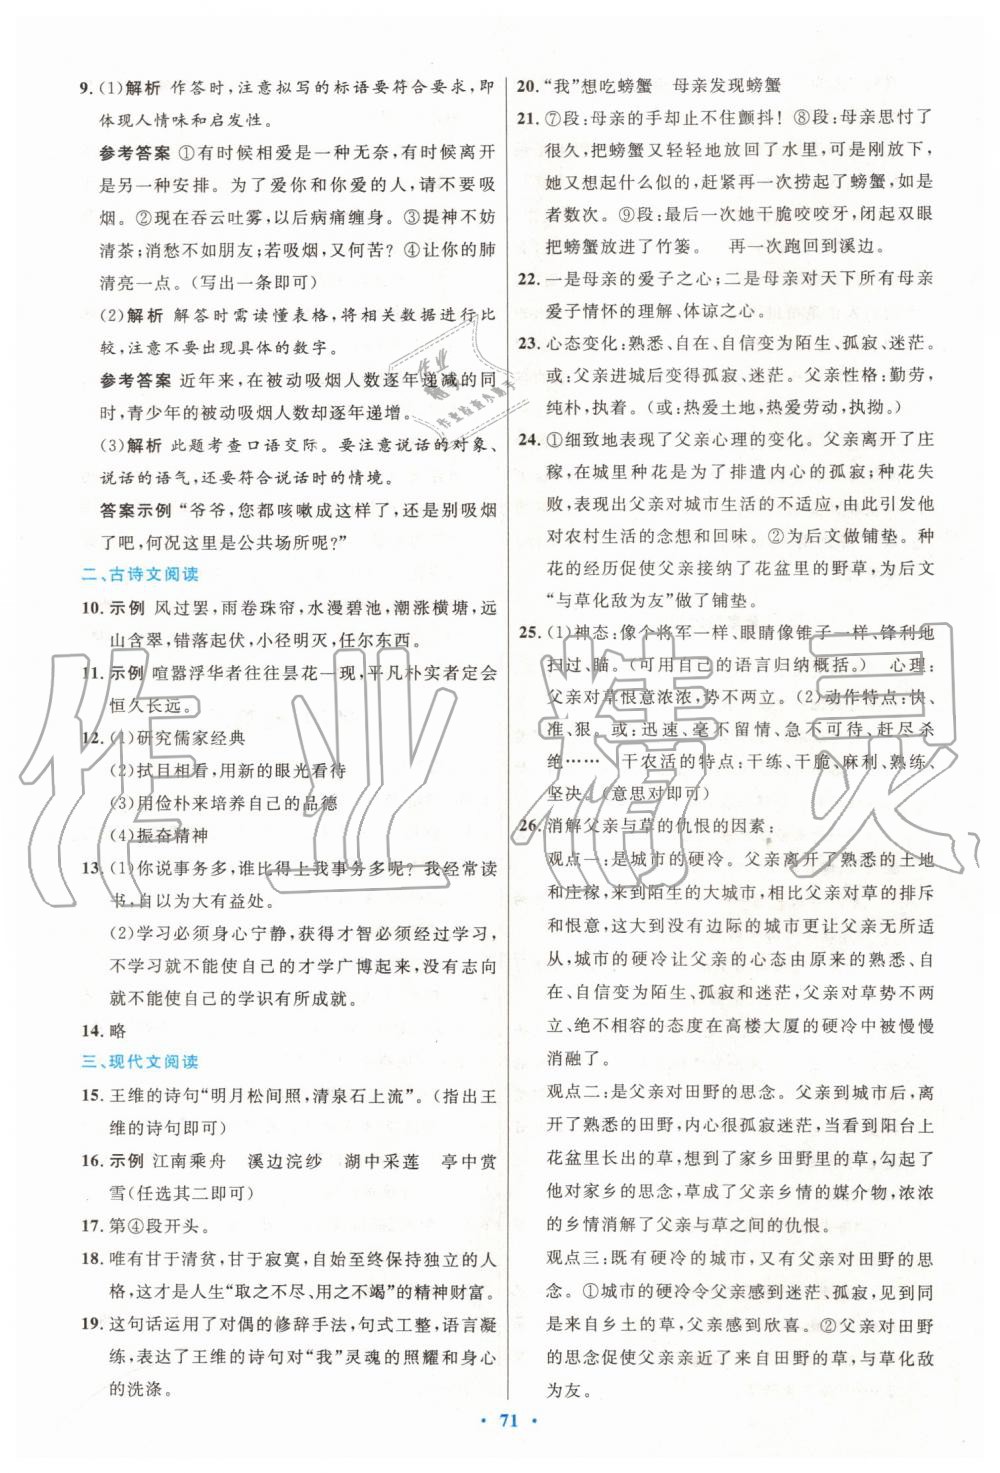 9. (1)解析 作答时,注意拟写的标语要符合要求,即
体现人情味和启发性。
参考答案 ①有时候相爱是一种无奈,有时候离开
是另一种安排。为了爱你和你爱的人,请不要吸
烟。②现在吞云吐雾,以后病痛缠身。③提神不妨
清茶;消愁不如朋友;若吸烟,又何苦?④让你的肺
清亮一点。(写出一条即可)
(2)解析 解答时需读懂表格,将相关数据进行比
较,注意不要出现具体的数字。
参考答案 近年来,在被动吸烟人数逐年递减的同
时,青少年的被动吸烟人数却逐年递增。
(3)解析 此题考查口语交际。要注意说话的对象、
说话的语气,还要符合说话时的情境。
答案示例 “爷爷,您都咳嗽成这样了,还是别吸烟
了吧,何况这里是公共场所呢?”
二、古诗文阅读
10. 示例 风过罢,雨卷珠帘,水漫碧池,潮涨横塘,远
山含翠,错落起伏,小径明灭,任尔东西。
11. 示例 喧嚣浮华者往往昙花一现,平凡朴实者定会
恒久长远。
12. (1)研究儒家经典
(2)拭目相看,用新的眼光看待
(3)用俭朴来培养自己的品德
(4)振奋精神
13. (1)你说事务多,谁比得上我事务多呢?我经常读
书,自以为大有益处。
(2)学习必须身心宁静,获得才智必须经过学习,
不学习就不能使自己的才学广博起来,没有志向
就不能使自己的学识有所成就。
14. 略
三、现代文阅读
15. 王维的诗句“明月松间照,清泉石上流”。(指出王
维的诗句即可)
16. 示例 江南乘舟 溪边浣纱 湖中采莲 亭中赏
雪(任选其二即可)
17. 第④段开头。
18. 唯有甘于清贫,甘于寂寞,自始至终保持独立的人
格,这才是人生“取之不尽、用之不竭”的精神财富。
19. 这句话运用了对偶的修辞手法,句式工整,语言凝
练,表达了王维的诗句对“我”灵魂的照耀和身心
的洗涤。
20. “我”想吃螃蟹 母亲发现螃蟹
21. ⑦段:母亲的手却止不住颤抖! ⑧段:母亲思忖了
很久,把螃蟹又轻轻地放在了水里,可刚放下,
她又想起什么似的,赶紧再一次捞起了螃蟹,如是
者数次。⑨段:最后一次她干脆咬咬牙,闭起双眼
把螃蟹放进了竹篓。 再一次跑回到溪边。
22. 一是母亲的爱子之心;二是母亲对天下所有母亲
爱子情怀的理解、体谅之心。
23. 心态变化:熟悉、自在、自信变为陌生、孤寂、迷茫。
或:父亲进城后变得孤寂、迷茫。父亲性格:勤劳,
纯朴,执着。(或:热爱土地,热爱劳动,执拗。)
24. ①细致地表现了父亲心理的变化。父亲离开了庄
稼,在城里种花是为了排遣内心的孤寂;种花失
败,表现出父亲对城市生活的不适应,由此引发他
对农村生活的念想和回味。②为后文做铺垫。种
花的经历促使父亲接纳了花盆里的野草,为后文
“与草化敌为友”做了铺垫。
25. (1)神态:像个将军一样、眼睛像锥子一样、锋利地
扫过、瞄。(可用自己的语言归纳概括。) 心理:
父亲对草恨意浓浓,势不两立。(2)动作特点:快、
准、狠。或:迅速、毫不留情、急不可待、赶尽杀
绝…… 干农活的特点:干练、干脆、麻利、熟练、
坚决。(意思对即可)
26. 消解父亲与草的仇恨的因素:
观点一:是城市的硬冷。父亲离开了熟悉的土地
和庄稼,来到陌生的大城市,相比父亲对草的排斥
和恨意,大而没有边际的城市更让父亲无所适
从,城市的硬冷让父亲的心态由原来的熟悉、自
在、自信变为陌生、孤寂和迷茫,父亲对草势不两
立、绝不相容的态度在高楼大厦的硬冷中被慢慢
消融了。
观点二:是父亲对田野的思念。父亲到城市后,离
开了乡村的田野,内心很孤寂迷茫,当看到阳台上
花盆里长出的草,想到了家乡田野里的草,勾起了
他对家乡的思念,草成了父亲乡情的媒介物,浓浓
的乡情消解了父亲与草之间的仇恨。
观点三:既有硬冷的城市,又有父亲对田野的思
念。①城市的硬冷令父亲感到迷茫,在此处见到
来自乡土的草,父亲感到欣喜。②父亲对田野
的思念促使父亲亲近了来自田野的草,与草化敌
为友。
71
作业精灵